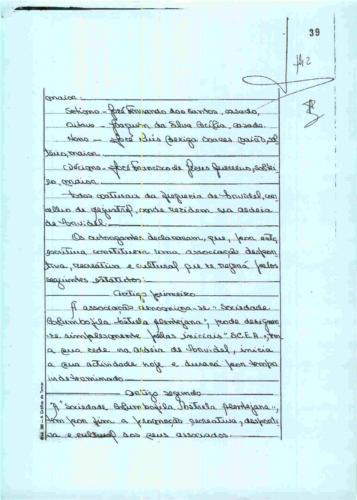 39
142
maior
Setimo - José Fernando dos Santos, casado,
Oitavo - Joaquim da Silva Basílio, casado
Nono - José Luis Soares Baião, sol
teiro, maior
Decimo - José Francisco de Jesus Guerreiro, soltei
ro, maior
todos naturais da freguesia de Ervidel, con
celho de Aljustrel, onde residem na aldeia
de Ervidel.
Os outorgantes declararam, que, por esta
escritura constituem uma associação despor
tiva, recreativa e cultural que se regerá pelos
seguintes estatutos:
Artigo primeiro
A associação denomina-se "Sociedade
Columbofila Estrela Alentejana", pode designar
-se simplesmente pelas iniciais "SCEA", tem
a sua sede na aldeia de Ervidel, inicia
a sua actividade hoje e durará por tempo
indeterminado
Artigo segundo
A "Sociedade Columbofila Estrela Alentejana",
tem por fim a promoção recreativa, desporti
va e cultural dos seus associados.